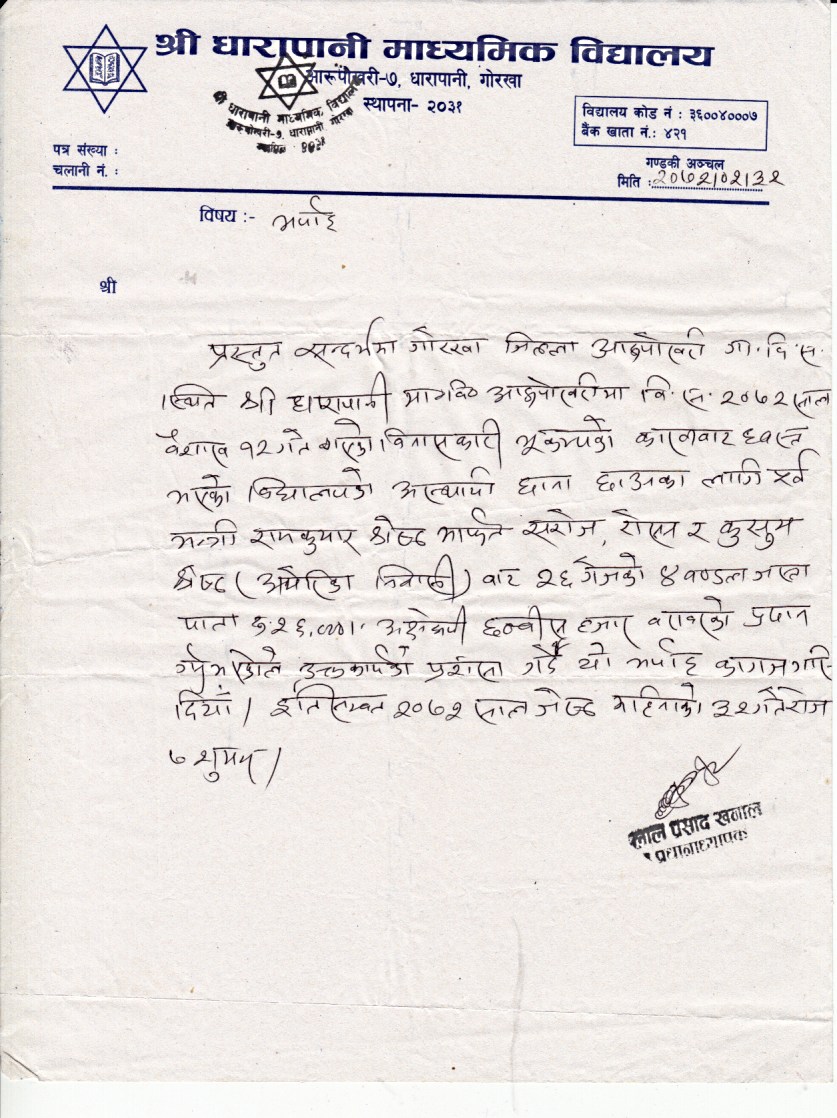 श्री धारापानी माध्यमिक विद्यालय
आरूपोखरी-७, धारापानी, गोरखा
स्थापना- २०३१
श्री धारापानी माध्यमिक विद्यालय
आरूपोखरी-७, धारापानी, गोरखा
विद्यालय कोड नं : ३६००४०००७
बैंक खाता नं.: ४२१
पत्र संख्या :
चलानी नं. :
गण्डकी अञ्चल
मिति : २०७२/०२/३२
विषय :- भर्पाइ
श्री
प्रस्तुत सन्दर्भमा गोरखा जिल्ला आरूपोखरी गा.वि.स.
स्थित श्री धारापानी मा.वि. आरूपोखरीमा वि.स. २०७२ साल
वैशाख १२ गते गएको विनासकारी भूकम्पको कारणवाट ध्वस्त
भएको विद्यालयको अस्थायी छाना छाउनका लागि पूर्व
मन्त्री रामकुमार श्रेष्ठ मार्फत सरोज, रोएस र कुसुम
श्रेष्ठ (अमेरिका निवासी) वाट २६ गेजको ४ वण्डल जस्ता
पाता रु. २६,०००।- अक्षेरूपी छव्वीस हजार वरावरको प्रदान
गर्नुभएकोले उक्त कार्यको प्रशंसा गर्दै यो भर्पाइ कागज गरि
दियौं । इति सम्वत २०७२ साल जेष्ठ महिनाको ३२ गते रोज
७ शुभम् ।
लाल प्रसाद खनाल
प्रधानाध्यापक